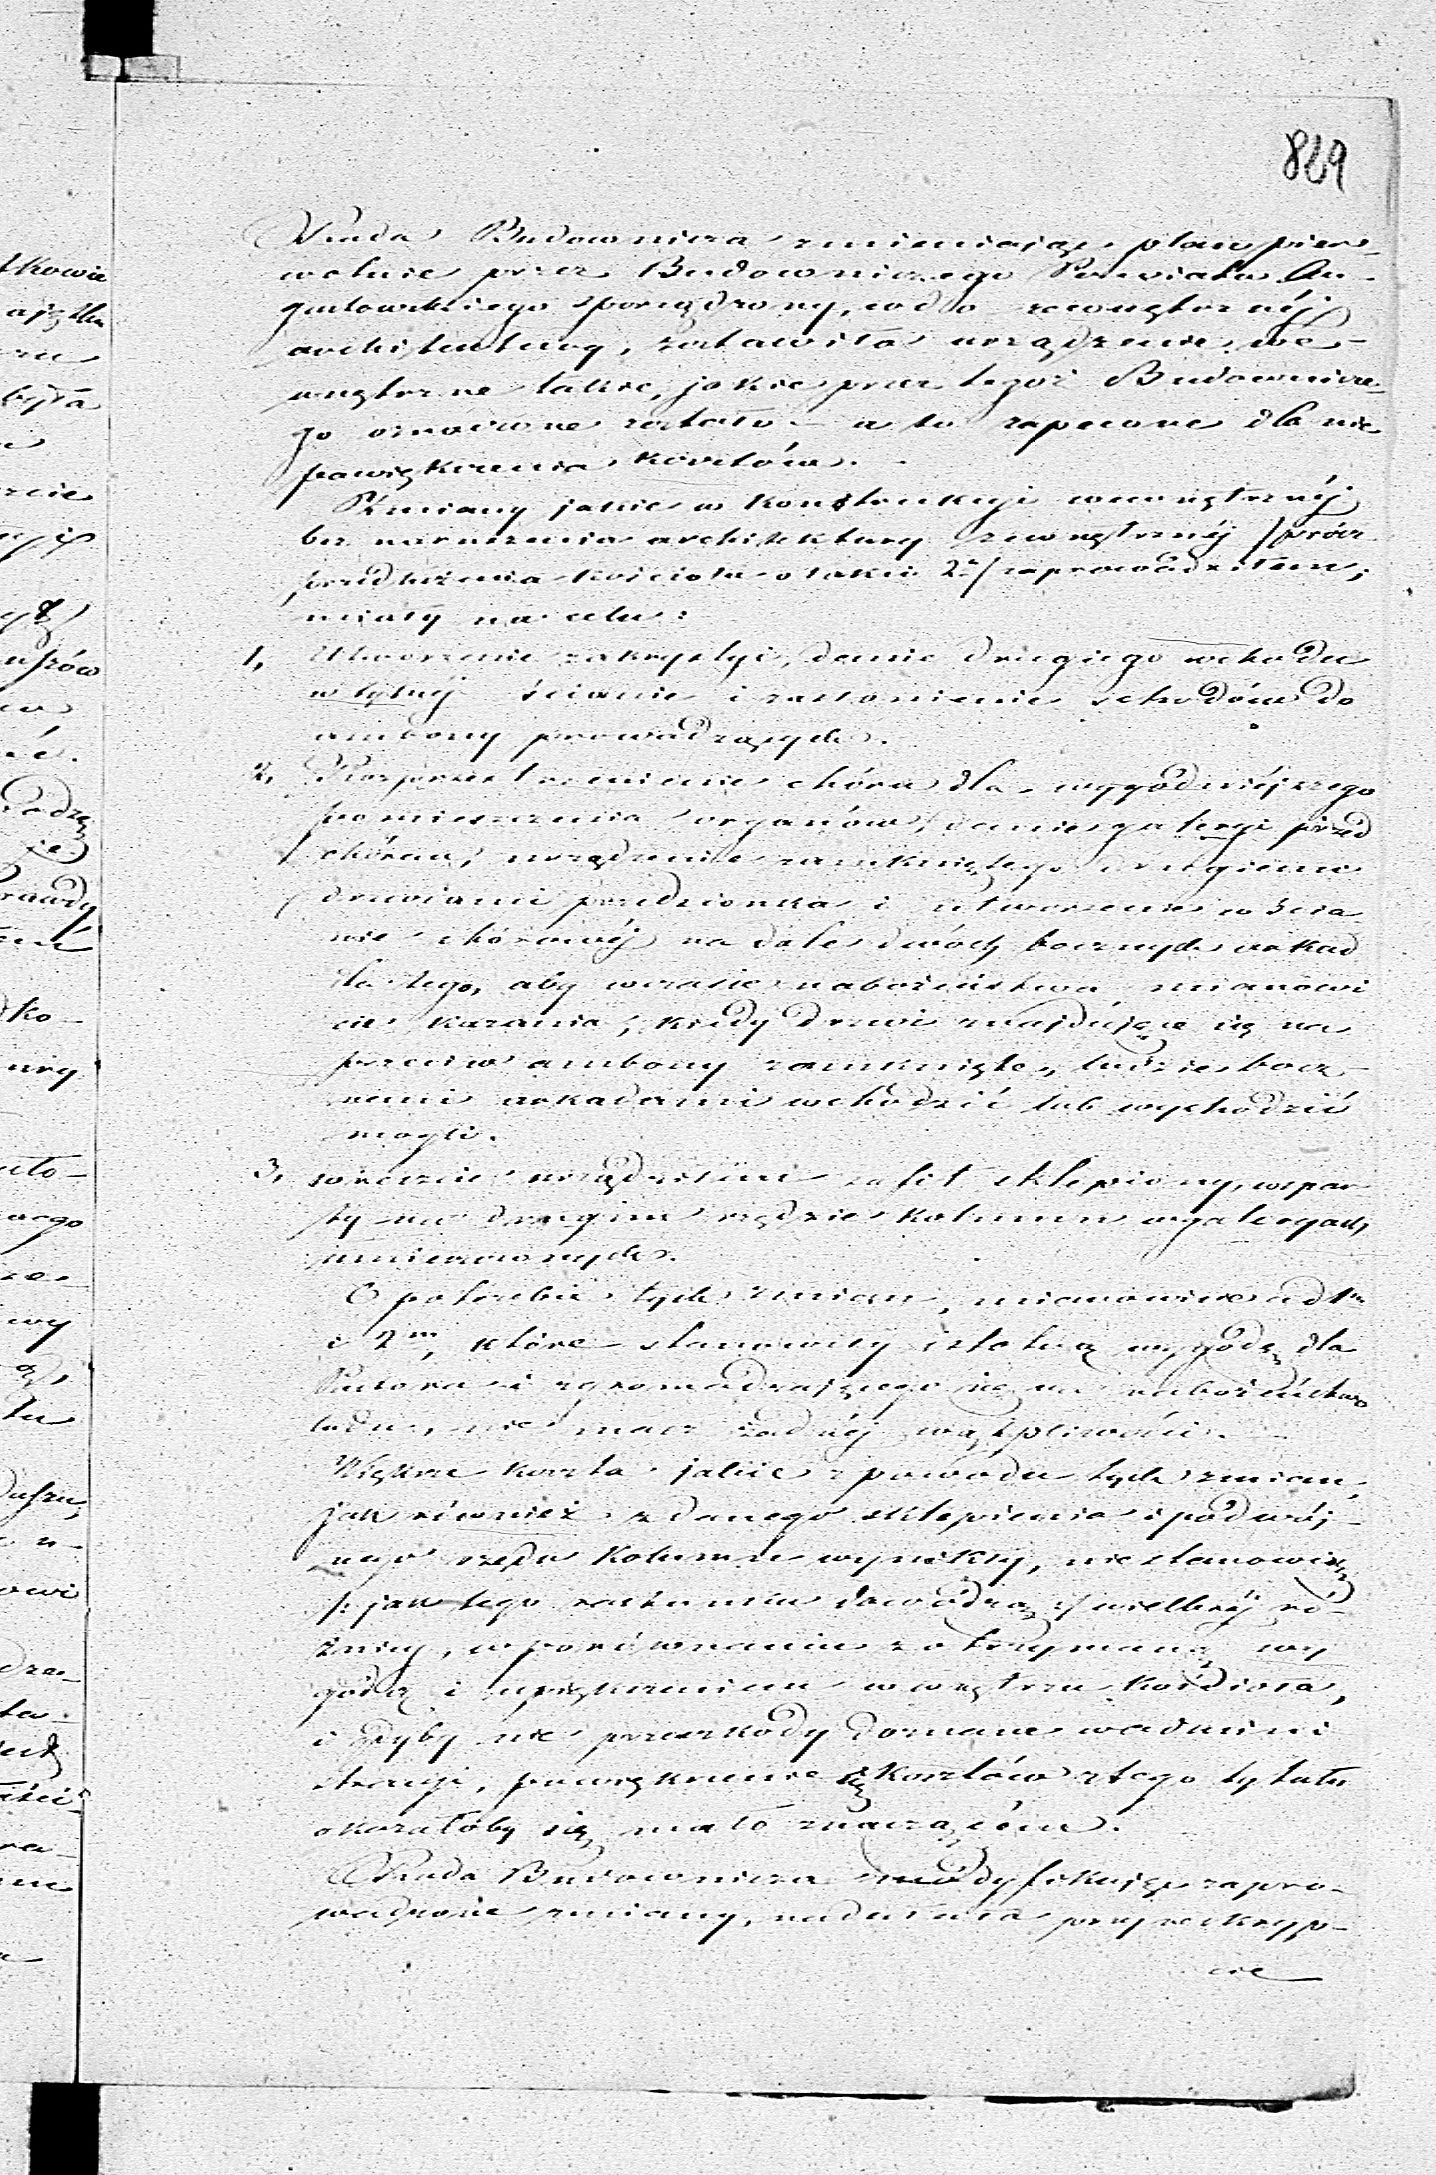 829
Rada Budownicza zmieniając plan pier-
wotnie przez Budowniczego Powiatu Au-
gustowskiego sporządzony, co do zewnętrznéj
architektury, zostawiła urządzenie we-
wnętrzne takie, jakie przez tegoż Budownicze-
go oznaczone zostało – a to zapewne dla nie
powiększenia kosztów.
Zmiany jakie w konstrukcyi wewnętrznéj
bez naruszenia architektury zewnętrznéj /prócz
przedłużenia kościoła o łokci 2/ zaprowadziłem,
miały na celu:
1, Utworzenie zakrystyi, danie drugiego wchodu
w tylnéj ścianie i zasłonienie schodów do
ambony prowadzących.
2, Rozprzestrzenienie chóru dla wygodniéjszego
pomieszczenia organów, danie galeryi przed
chórem, urządzenie zamkniętego drugiemi
drzwiami przedsionka i utworzenie w ścia
nie chórowéj na dole dwóch bocznych arkad
dla tego, aby w czasie nabożeństwa mianowi
cie kazania, kiedy drzwi znajdujące się na
przeciw ambony zamknięte, ludzie bocz-
nemi arkadami wchodzić lub wychodzić
mogli.
3, wreszcie urządziłem sufit sklepiony, wspar
ty na drugim rzędzie kolumn w galeryach
umieszczonych.
O potrzebie tych zmian, mianowicie ad 1m
i 2m, które stanowiły istotną wygodę dla
Pastora i zgromadzającego się na nabożeństwo
ludu, nie masz żadnéj wątpliwości.
Większe koszta jakie z powodu tych zmian,
jak również z danego sklepienia i podwój-
nego rzędu kolumn wynikły, nie stanowią
/: jak tego rachunki dowodzą :/ wielkiéj ró-
żnicy, w porównaniu z otrzymaną wy
godą i upiększeniem wewnątrz kościoła,
i gdyby nie przeszkody doznane w admini
stracyi, powiększenie kosztów z tego tytułu
okazałoby się mało znaczącém.
Rada Budownicza modyfikując zapro-
wadzone zmiany, nadesłała przy reskryp-
cie